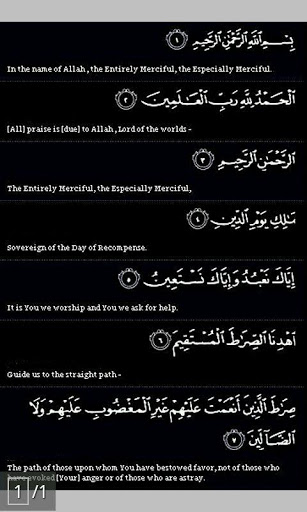 بِسْمِ ٱللَّهِ ٱلرَّحْمَٰنِ ٱلرَّحِيمِ ١
In the name of Allah, the Entirely Merciful, the Especially Merciful.
ٱلْحَمْدُ لِلَّهِ رَبِّ ٱلْعَٰلَمِينَ ٢
[All] praise is [due] to Allah, Lord of the worlds -
ٱلرَّحْمَٰنِ ٱلرَّحِيمِ ٣
The Entirely Merciful, the Especially Merciful,
مَٰلِكِ يَوْمِ ٱلدِّينِ ٤
Sovereign of the Day of Recompense.
إِيَّاكَ نَعْبُدُ وَإِيَّاكَ نَسْتَعِينُ ٥
It is You we worship and You we ask for help.
ٱهْدِنَا ٱلصِّرَٰطَ ٱلْمُسْتَقِيمَ ٦
Guide us to the straight path -
صِرَٰطَ ٱلَّذِينَ أَنْعَمْتَ عَلَيْهِمْ غَيْرِ ٱلْمَغْضُوبِ عَلَيْهِمْ وَلَا
ٱلضَّآلِّينَ ٧
The path of those upon whom You have bestowed favor, not of those who
have evoked [Your] anger or of those who are astray.
1/1